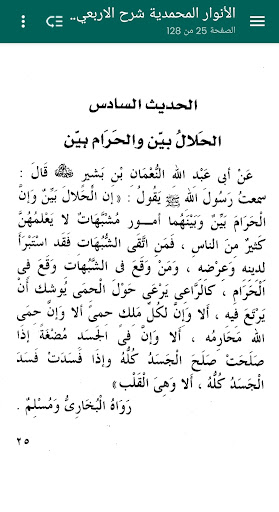 الأنوار المحمدية شرح الاربعي..
الصفحة 25 من 128
الحديث السادس
الحلالُ بيّن والحَرَام بيّن
عَنْ أبي عَبْد الله النُّعْمَان بْنِ بَشِيرٍ ﵁ قَالَ :
سمعتُ رَسُولَ الله ﷺ يَقُولُ : «إن الْحَلَالَ بَيِّنٌ وَإِنَّ
الْحَرَامَ بَيِّنٌ وَبَيْنَهُما أمــور مُشْتَبِهَاتٌ لا يَعْلَمُهُنَّ
كَثيرٌ منَ الناسِ ، فَمَنِ اتَّقَى الشُّبُهَات فَقَد اسْتَبْرَأَ
لدينه وَعرْضه ، وَمَنْ وَقَعَ فى الشُّبُهات وَقَعَ فى
الْحَرَامِ ، كالرَّاعِى يَرْعَى حَوْلَ الْحِمَى يُوشك أن
يَرْتَعَ فيه ، ألا وَإنَّ لكُلِّ مَلك حمىً ألا وَإنَّ حمَى
الله مَحَارمُه ، ألا وَإنَّ فى الجَسد مُضْغَةً إذَا
صَلَحَتْ صَلَحَ الْجَسَدُ كُلُّهُ وإذَا فَسَدَتْ فَسَدَ
الْجَسَدُ كُلُّه ، ألا وَهىَ الْقَلْب»
رَوَاهُ الْبُخَارِىُّ وَمُسْلِمٌ .
٢٥